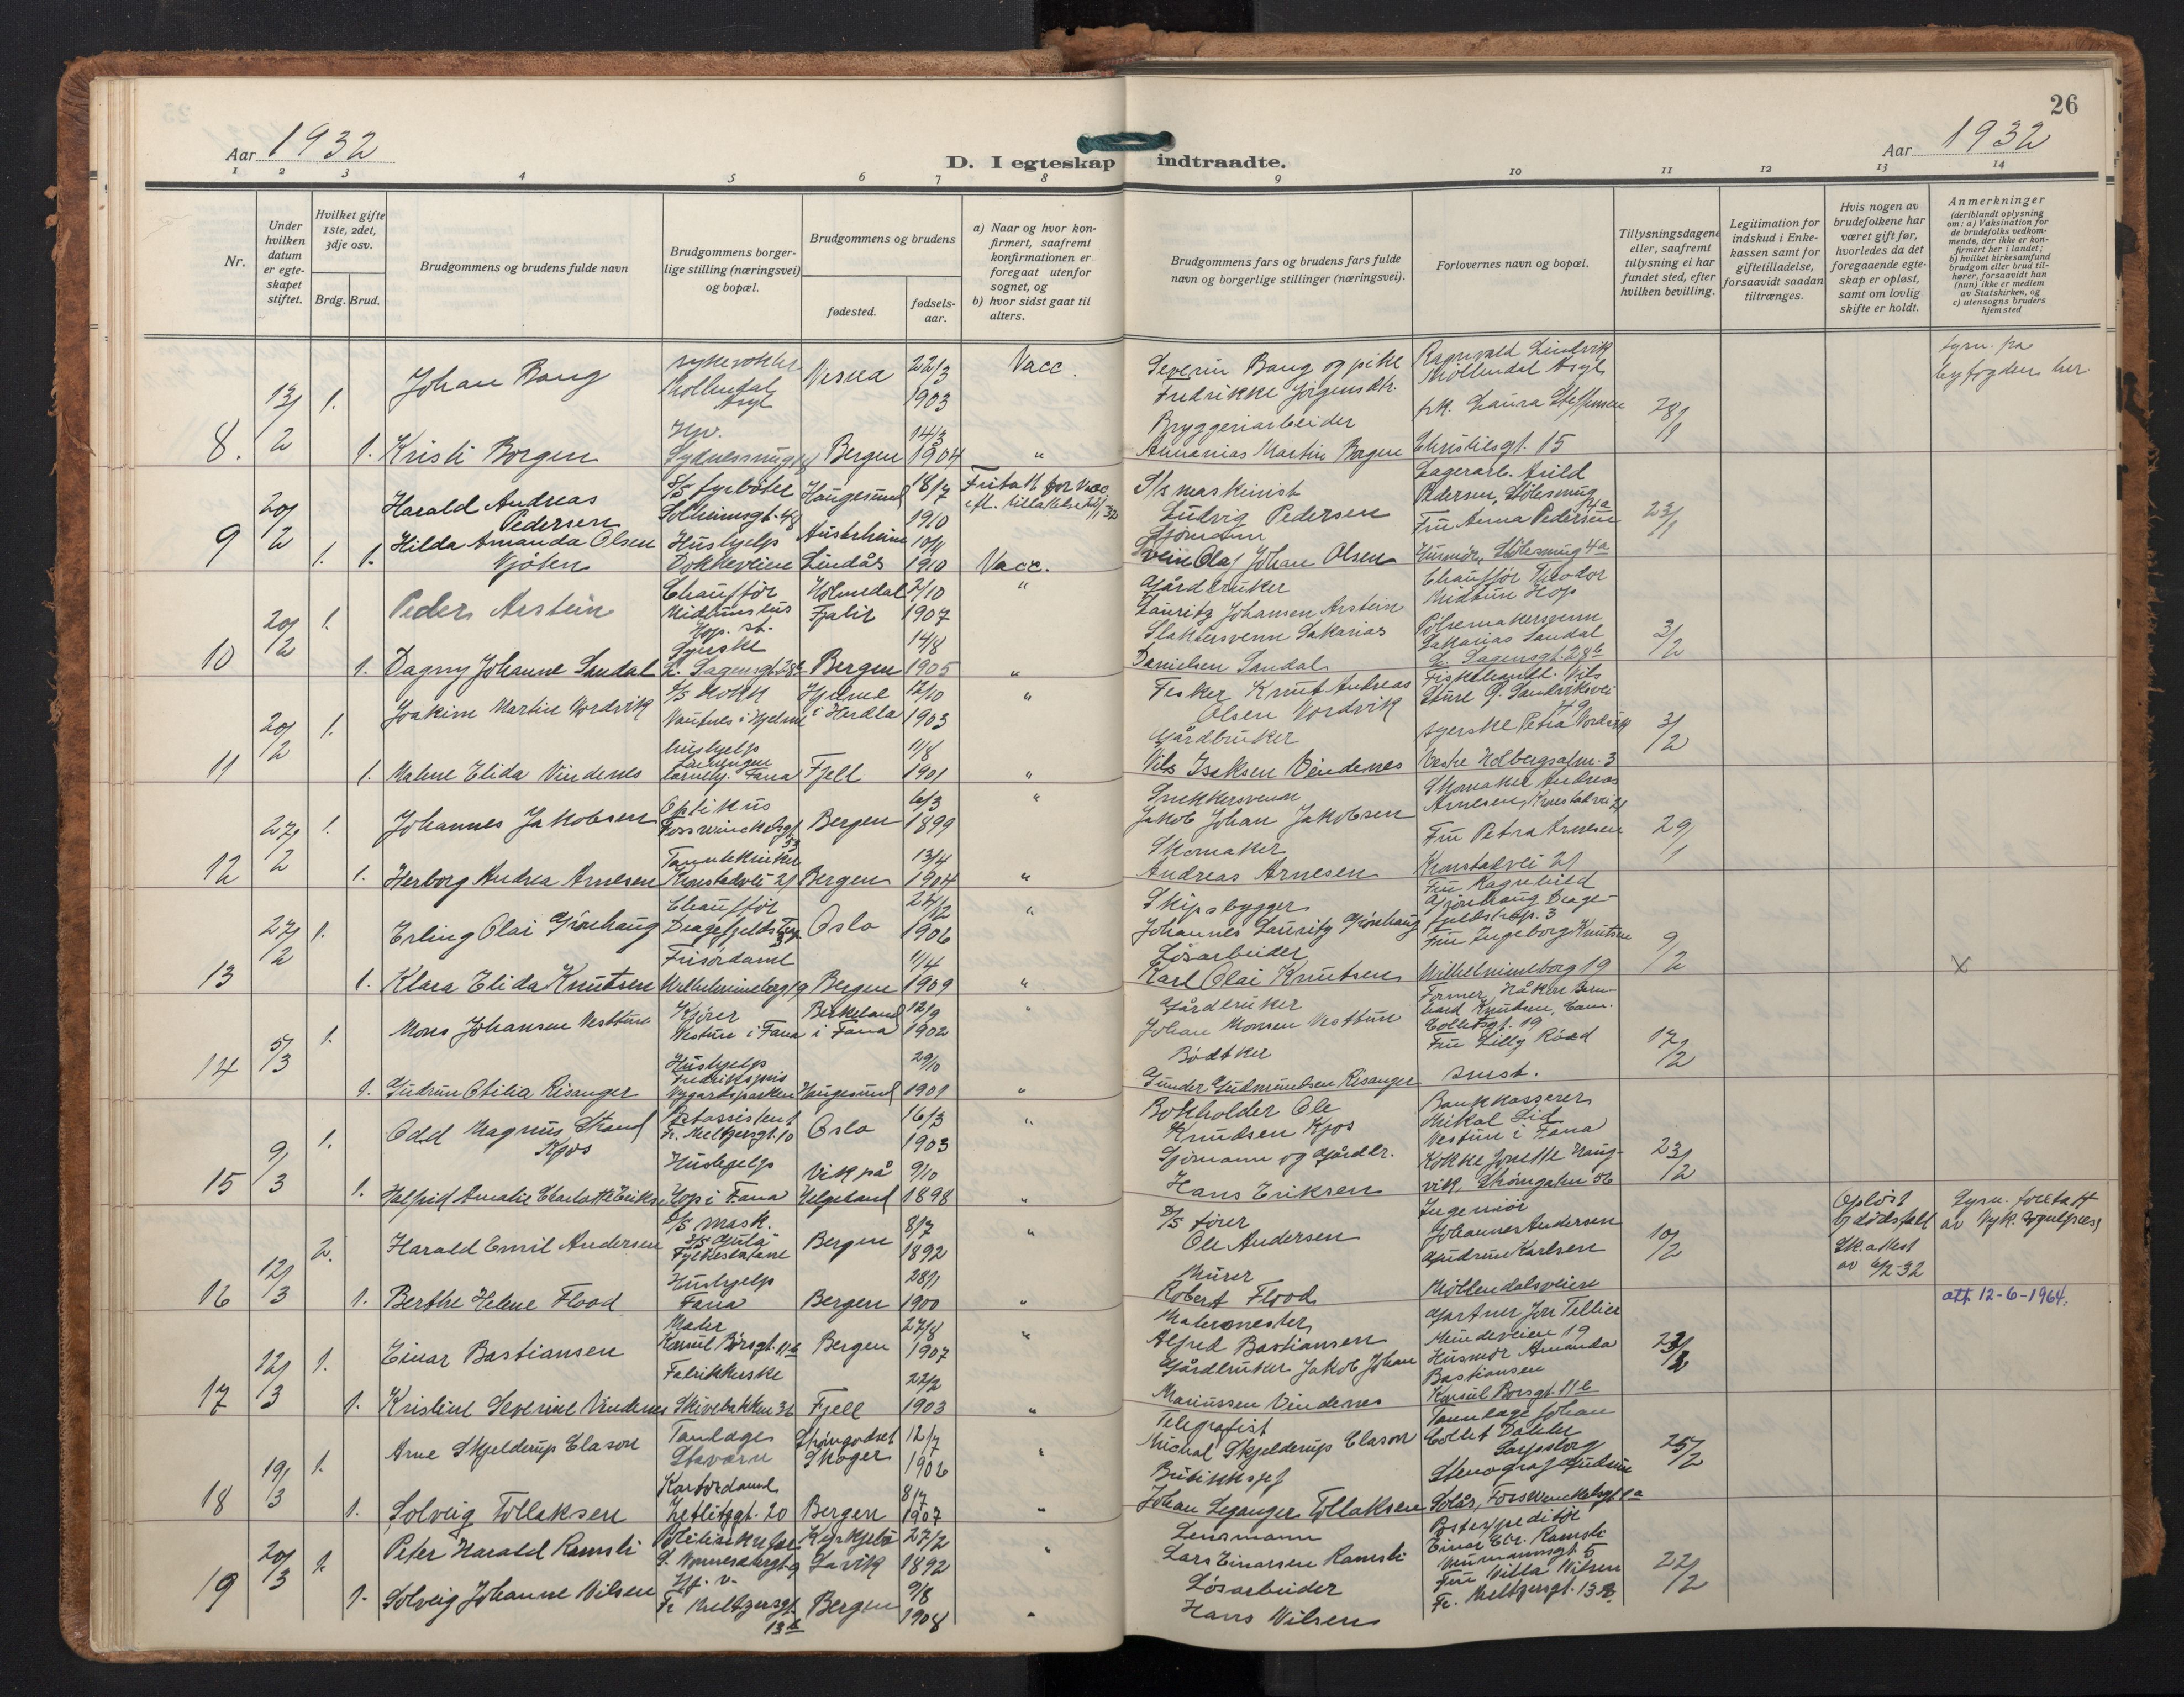 26
Aar 1932
D. I egteskap indtraadte.
Aar 1932
1 2 3 4 5 6 7 8 9 10 11 12 13 14
Nr.
Under hvilken datum er egteskapet stiftet.
Hvilket gifte 1ste, 2det, 3dje osv.
Brdg. Brud.
Brudgommens og brudens fulde navn
Brudgommens borgerlige stilling (næringsvei) og bopæl.
Brudgommens og brudens
fødested.
fødselsaar.
a) Naar og hvor konfirmert, saafremt konfirmationen er foregaat utenfor sognet, og
b) hvor sidst gaat til alters.
Brudgommens fars og brudens fars fulde navn og borgerlige stillinger (næringsvei).
Forlovernes navn og bopæl.
Tillysningsdagene eller, saafremt tillysning ei har fundet sted, efter hvilken bevilling.
Legitimation for indskud i Enkekassen samt for giftetilladelse, forsaavidt saadan tiltrænges.
Hvis nogen av brudefolkene har været gift før, hvorledes da det foregaaende egteskap er opløst, samt om lovlig skifte er holdt.
Anmerkninger
(deriblandt oplysning om: a) Vaksination for de brudefolks vedkommende, der ikke er konfirmert her i landet; b) hvilket kirkesamfund brudgom eller brud tilhører, forsaavidt han (hun) ikke er medlem av Statskirken, og c) utensogns bruders hjemsted
8. 13/2 1. Johan Bang Møllendal Asyl 22/3 1903 Vacc. Severin Bang og pike Fredrikke Jørgensdtr. Møllendal Asyl 28/1 byfogden her
1. Kristi Borgen Bergen 14/3 1904 " Bryggeriarbeider Ananias Martin Borgen frk. Laura Steffensen Christiesgt. 15
9 20/2 1. Harald Andreas Pedersen S/S fyrbøter Solheimsgt. 48 Haugesund 18/7 1910 S/s maskinist Ludvig Pedersen Lagerarb. Arild Pedersen, Fru Anna Pedersen 23/1
1. Hilda Amanda Olsen Hushjelp Dokkeveien Austrheim Lindås 10/11 1910 Vacc. Sjømann Olaf Johan Olsen
10 20/2 1. Peder Arstein Chauffør Midttuns hus Hop. st. Holmedal Fjalir 2/10 1907 " Gårdbruker Lauritz Johansen Arstein Chauffør Theodor Midttun Hop 3/2
1. Dagny Johanne Sandal Syerske L. Sagensgt. 28b Bergen 14/8 1905 " Slaktersvenn Sakarias Danielsen Sandal Pølsemakersvenn Sakarias Sandal L. Sagensgt. 28b
11 20/2 1. Joakim Martin Nordvik S/S Kokk Hjelme i Herdla 12/10 1903 " Fisker Knut Andreas Olsen Nordvik Fiskehandl. Nils 3/2
1. Malene Elida Vindenes hushjelp Fana Fjell 11/8 1901 " Gårdbruker Nils Isaksen Vindenes syerske Petra Nordvik Vestre Holbergsalm. 3
12 27/2 1. Johannes Jakobsen Optikus Fosswinckelsgt. Bergen 6/3 1899 " Jakob Johan Jakobsen Skomaker Andreas Arnesen, Kronstadvei 21 29/1
1. Herborg Andrea Arnesen Kronstadvei 21 Bergen 13/4 1904 " Skomaker Andreas Arnesen Fru Petra Arnesen Kronstadvei 21
13 27/2 1. Erling Olai Grønhaug Chauffør Oslo 24/12 1906 " Skipsbygger Johannes Lauritz Grønhaug Fru Ragnhild Grønhaug 9/2
1. Klara Elida Knutsen Frisørdame Wilhelmineborg 19 Bergen 11/4 1909 " Løsarbeider Karl Olai Knutsen Fru Ingeborg Knutsen Wilhelmineborg 19 X
14 5/3 1. Mons Johansen Vesttun Kjører Vesttun i Fana Birkeland i Fana 12/9 1902 " Gårdbruker Johan Monsen Vesttun Former Håkon Bernhard Knutsen, Colletsgt. 19 17/2
1. Gudrun Otilia Risanger Hushjelp Nygårdsparken Haugesund 29/10 1901 " Bødtker Gunder Gudmundsen Risanger Fru Lilly Roed
15 9/3 1. Odd Magnus Strand Kjos Postassistent Fr. Meltzersgt. 10 Oslo 16/3 1903 " Bokholder Ole Knudsen Kjos Bankkasserer Mikal Lid Vestun i Fana 23/2
1. Halfrid Amalie Charlotte Eriksen Hushjelp Hop i Fana Vik på Helgeland 9/10 1898 " Sjømann og gårdbr. Hans Eriksen Kokke Jonette Haugvik, Strømgaten 56
16 12/3 2. Harald Emil Andersen S/S mask. S/S "Gula" Fylkesbåtane Bergen 8/7 1892 " S/S fører Ole Andersen Ingeniør Johannes Andersen 10/2 Opløst v/ dødsfall Sk. attest av 6/2-32 Lysn. foretatt av Nyk. sogneprest
1. Berthe Helene Flood Hushjelp Fana Bergen 28/1 1900 " Murer Robert Flood Gudrun Karlsen Møllendalsveien att 12-6-1964.
17 12/3 1. Einar Bastiansen Maler Konsul Børsgt. 11b Bergen 27/8 1907 " Malermester Alfred Bastiansen Gartner Tellier Mindeveien 19
1. Kristine Severine Vindenes Fabrikkerske Skivebakken 36 Fjell 22/2 1903 " Gårdbruker Jakob Johan Mariussen Vindenes Husmor Amanda Bastiansen Konsul Børsgt. 11b
18 19/3 1. Arne Skjelderup Clason Tannlæge Stavern Strømgodset Skoger 12/7 1906 " Telegrafist Michal Skjelderup Clason Tannlæge Johan Collet Sarpsborg 25/2
1. Solveig Tollaksen Kontordame Zetlitzgt. 20 Bergen 8/7 1907 " Butikksjef Johan Leganger Tollaksen Stenograf Gudrun Solås, Fosswinckelsgt. 1a
19 20/3 1. Peter Harald Ramsli Lavik 27/2 1892 " Lensmann Lars Einarsen Ramsli Postexpeditør Einar Chr. Ramsli Neumannsgt. 5 22/2
1. Solveig Johanne Nilsen Fr. Meltzersgt. 13b Bergen 9/8 1908 " Løsarbeider Hans Nilsen Fru Milla Nilsen Fr. Meltzersgt. 13b